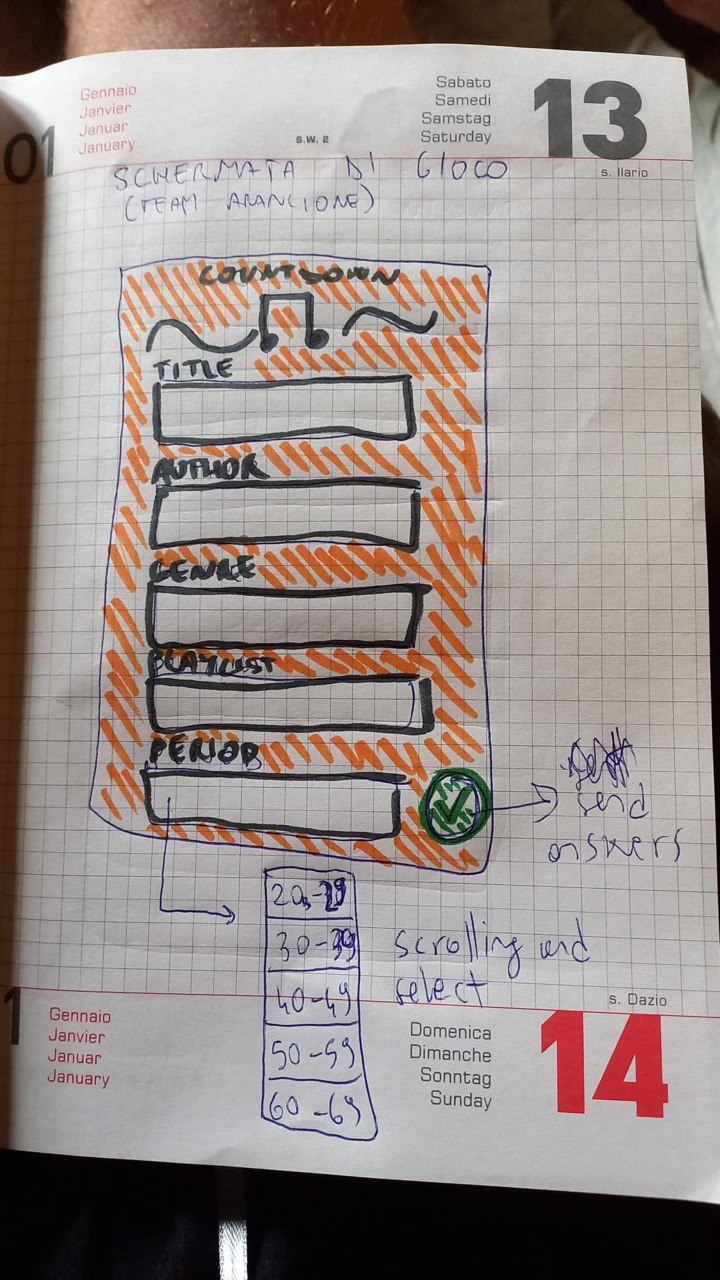 Gennaio
Janvier
Januar
January
01
S.W. 2
Sabato
Samedi
Samstag
Saturday
13
s. Ilario
SCHERMATA DI GIOCO
(TEAM ARANCIONE)
COUNTDOWN
TITLE
AUTHOR
GENRE
PLAYLIST
PERIOD
send
answers
20-29
30-39
40-49
50-59
60-69
scrolling and
select
1
Gennaio
Janvier
Januar
January
s. Dazio
Domenica
Dimanche
Sonntag
Sunday
14